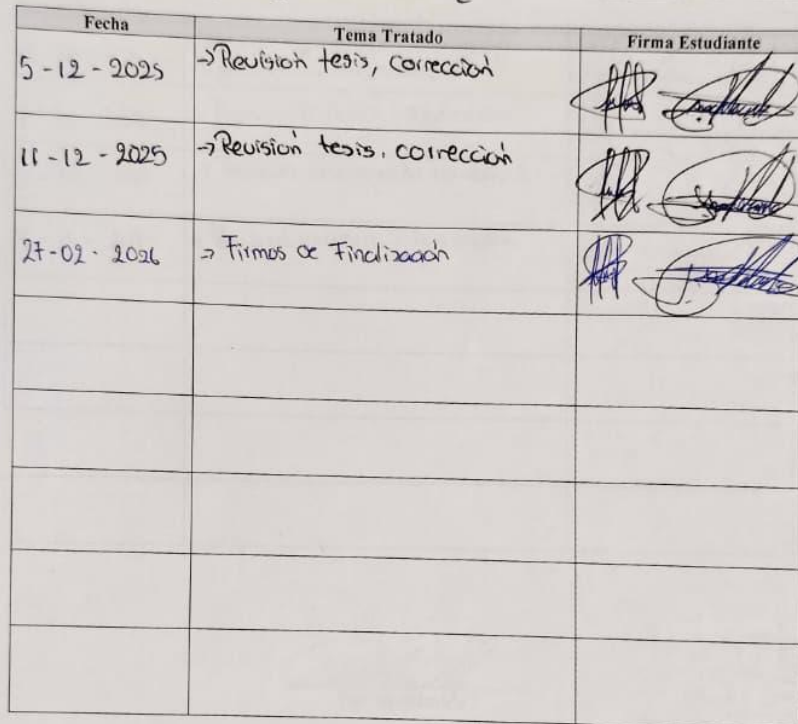 Fecha Tema Tratado Firma Estudiante
5-12-2025 →Revisión tesis, corrección
11-12-2025 →Revisión tesis, corrección
27-02-2026 → Firmas de Finalización